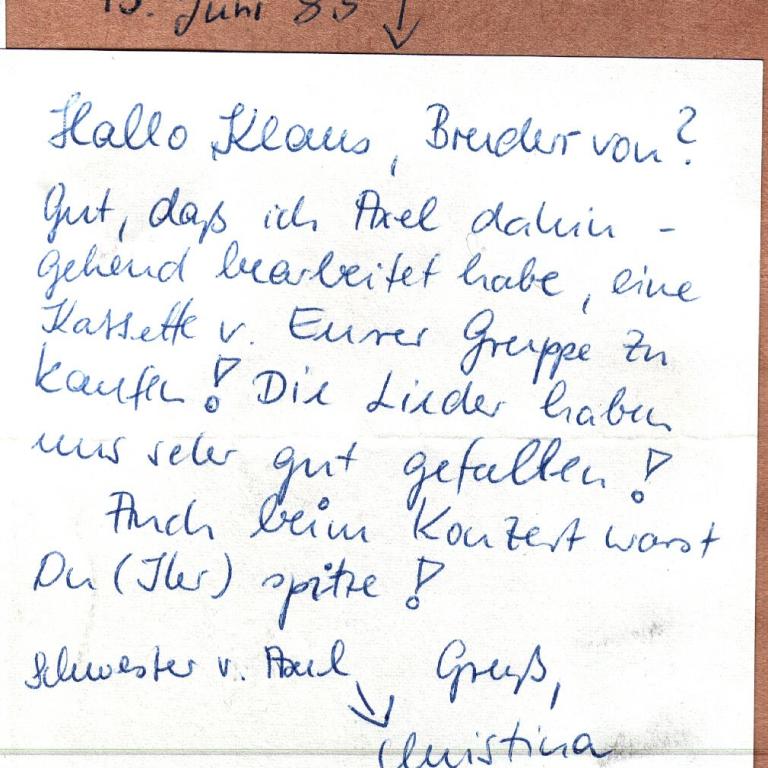 13. Juni 85 ↓
Hallo Klaus, Bruder von?
Gut, daß ich Axel dahin-
gehend bearbeitet habe, eine
Kassette v. Eurer Gruppe zu
kaufen! Die Lieder haben
uns sehr gut gefallen!
Auch beim Konzert warst
Du (Ihr) spitze!
Schwester v. Axel Gruß,
Christina